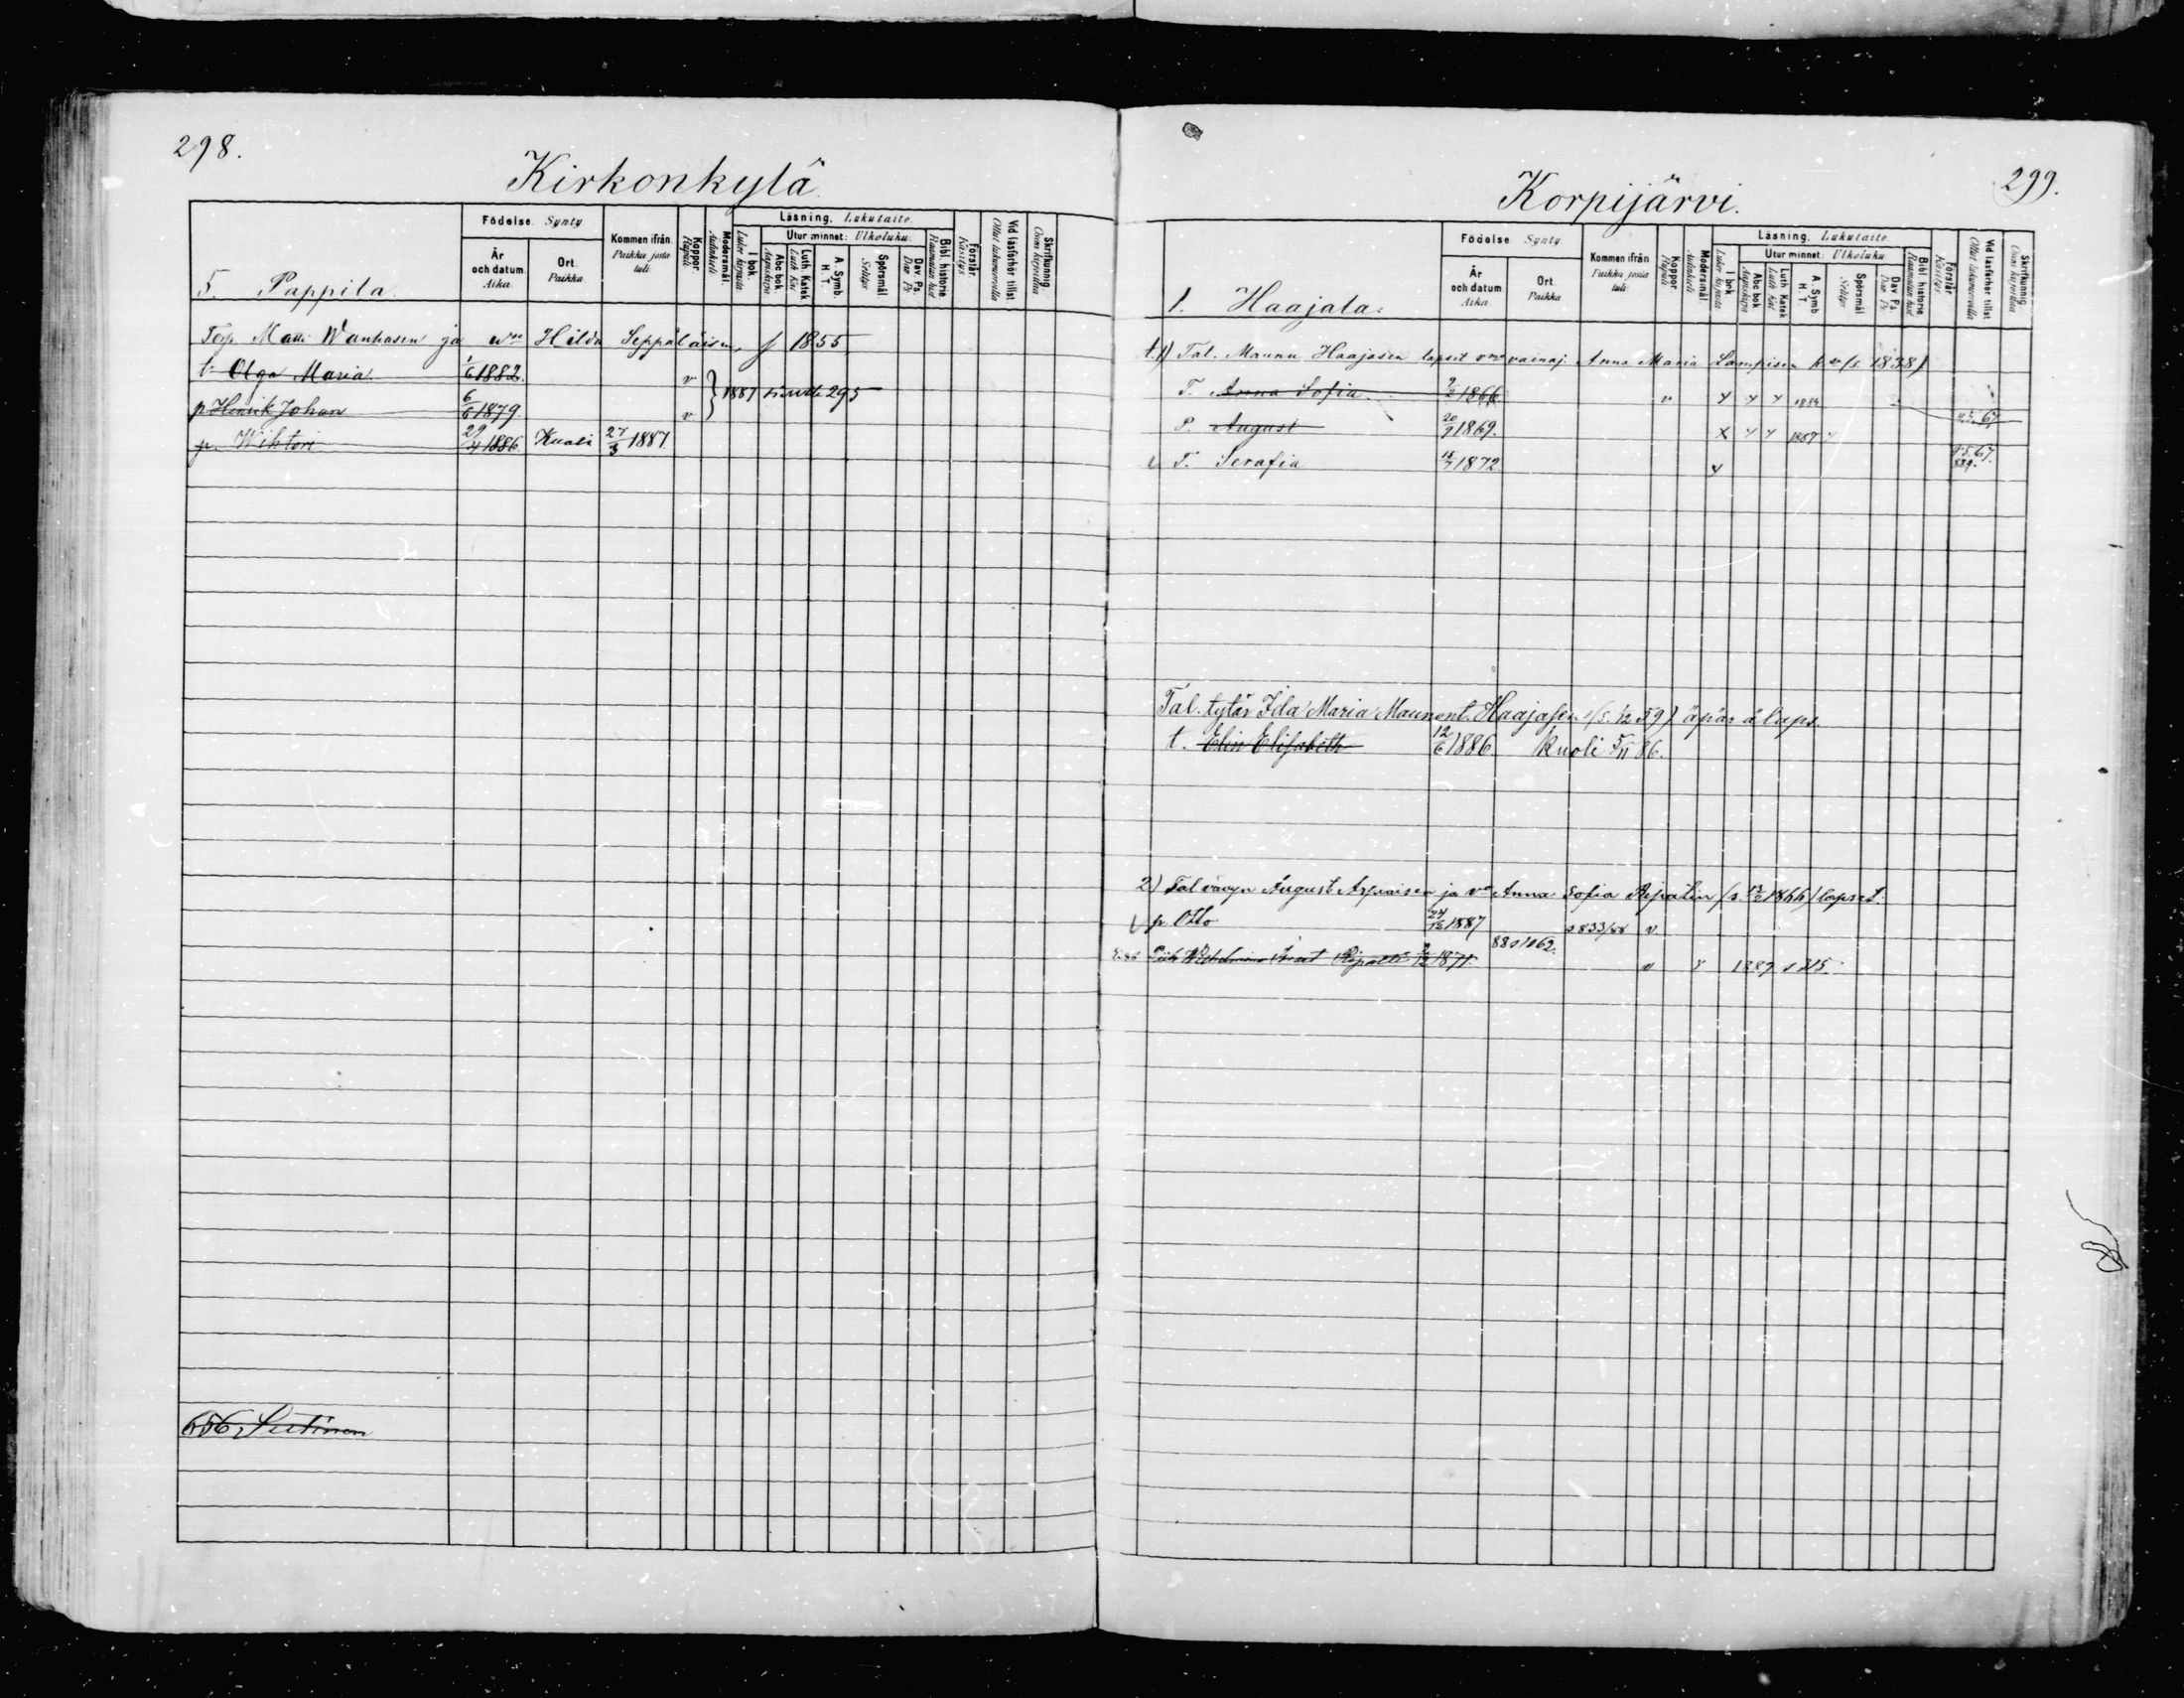 298.
Kirkonkylä
5. Pappila.
Födelse. Synty
År och datum. Aika.
Ort. Paikka
Kommen ifrån. Paikka josta tuli.
Koppor. Rupuli
Modersmål. Äidinkieli
Läsning. Lukutaito.
I bok. Luku kirjasta
Utur minnet: Ulkoluku.
Abc bok. Aapiskirja
Luth. Katek. Luth Kat
A. Symb. H. T.
Spörsmål. Selitys
Dav. Ps. Daw Ps
Bibl. historie Raamatun hist
Förstår. Käsitys.
Vid läsförhör tillst. Ollut lukukuntoilla
Skriftkunnig. Osaa kirjoittaa
Torp. Matti Wanhasen ja wmo Hilda Seppäläisen, s 1855
t. Olga Maria 1/6 1882. v
p Henrik Johan 6/6 1879. v } 1881 siv 295
p. Wihtori 29/4 1886. Kuoli 27/3 1887.
656, Sutinen
299.
Korpijärvi.
1. Haajala.
Födelse Synty
År och datum Aika.
Ort. Paikka
Kommen ifrån Paikka josta tuli
Koppor Rupuli
Modersmål. Äidinkieli
Läsning. Lukutaito
I bok Luku kirjasta
Utur minnet: Ulkoluku
Abc bok Aapiskirja
Luth. Katek Luth Kat
A. Symb H. T.
Spörsmål Selitys
Dav. Ps Daw Ps
Bibl. historie Raamatun hist
Förstår Käsitys
Vid läsförhör tillst
Skriftkunnig Osaa kirjoittaa
1) Tal. Maunu Haajasen lapset vmo vainaj. Anna Maria Lampisen k a (s. 1838)
T. Anna Sofia 1866. v
P. August 20/9 1869. 85.67
T. Serafia 15/7 1872. 85.67. 889.
Tal. tytär Ida Maria Maunont. Haajasen (s. 1/2 59) äpärä laps.
t. Elin Elisabeth 12/6 1886. Kuoli 5/11 86.
2) Tal vävyn August Arpiaisen ja vo Anna Sofia (s. 1866) lapset.
p. Otto 24/12 1887 s 833/88 v.
88 s 1062.
Piik Wilhelmina 1871. v 1889 s 315.